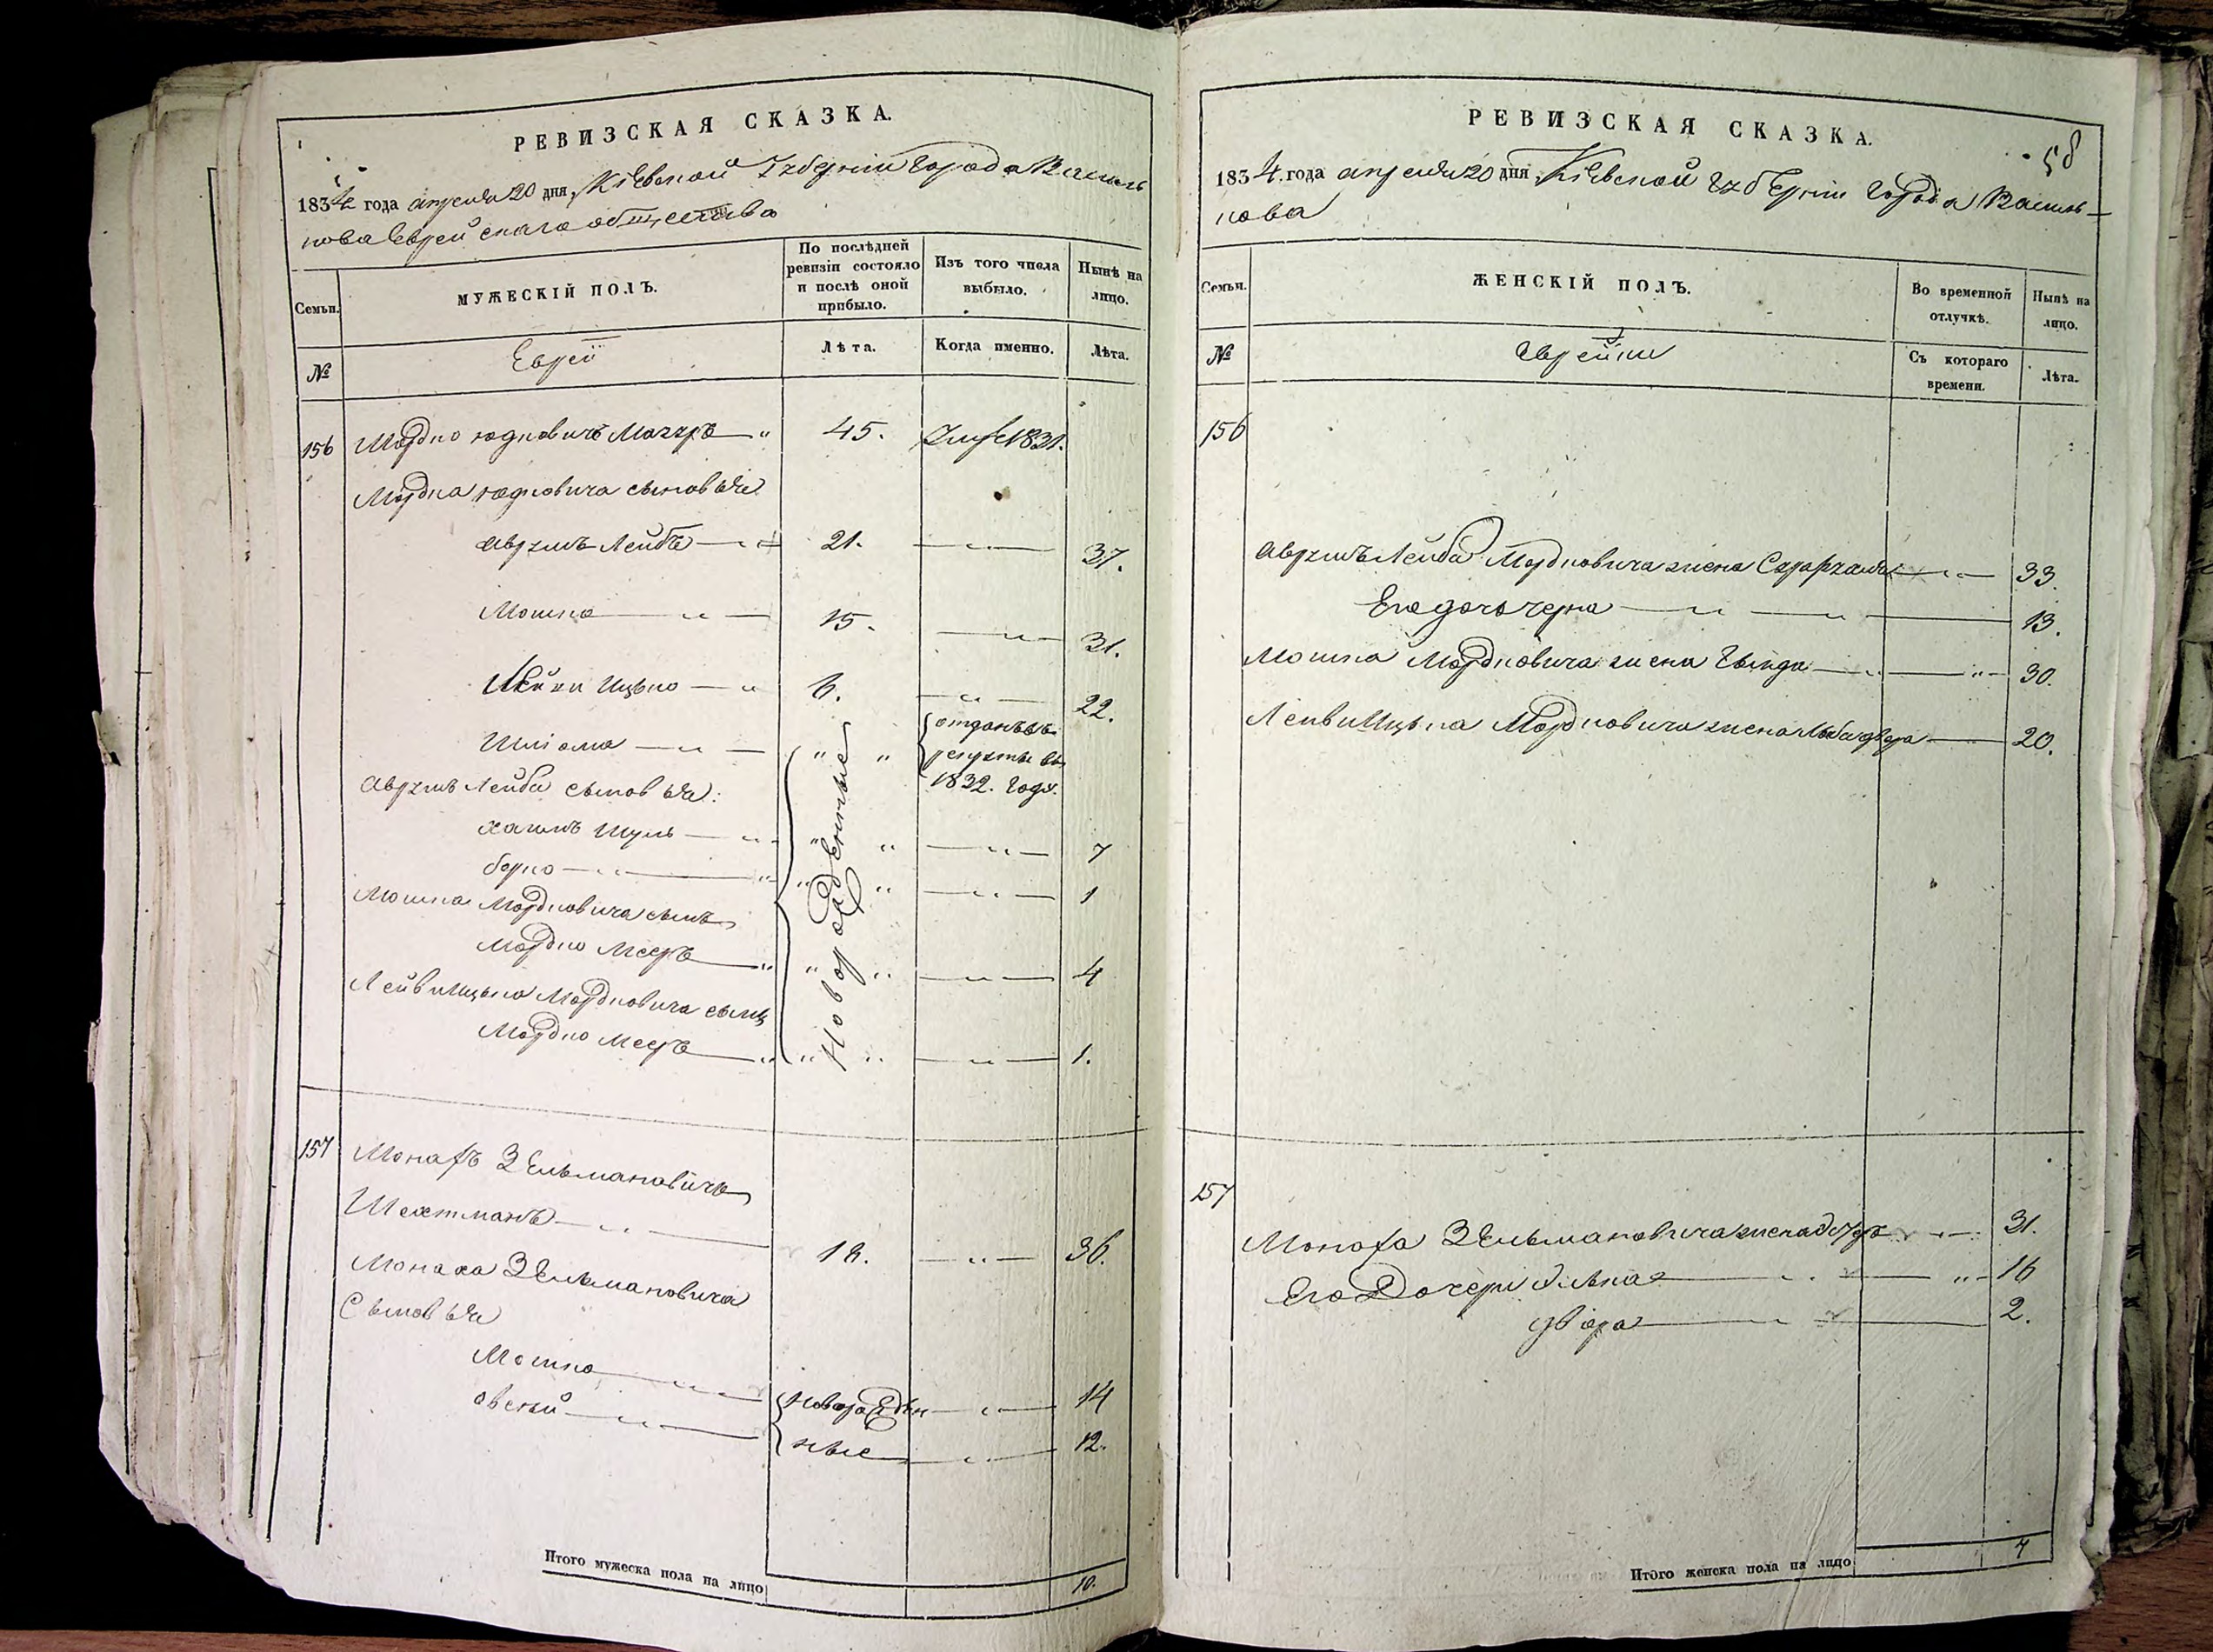 РЕВИЗСКАЯ СКАЗКА.
1834 года апреля 20 дня, Кіевской Губерніи Города Василь
кова Еврейскаго общества
Семьи.
МУЖЕСКІЙ ПОЛЪ.
По послѣдней ревизіи состояло и послѣ оной прибыло.
Изъ того числа выбыло.
Нынѣ на лицо.
№
Евреи
Лѣта.
Когда именно.
Лѣта.
156 Мордко Юдковичъ 45. 1831.
Мордка Юдковича сыновья
Аврумъ Лейбъ 21. 37.
Мошко 15. 31.
Ицько 6. 22.
Шліома отданъ въ
рекруты въ
1832. Году.
Новорожденные
Аврумъ Лейба сыновья:
Хаимъ Шулъ 7
Борко 1
Мошка Мордковича сынъ
Мордко Мееръ 4
Лейви Ицька Мордковича сынъ
Мордко Мееръ 1.
157 Монахъ Зельмановичъ
Шехтманъ 18. 36.
Монаха Зельмановича
Сыновья
Мошко Новорожден 14
Овсей ные 12.
Итого мужеска пола на лицо 10.
РЕВИЗСКАЯ СКАЗКА.
58
1834. года апреля 20 дня Кіевской Губерніи Города Василь
кова
Семьи.
ЖЕНСКІЙ ПОЛЪ.
Во временной отлучкѣ.
Нынѣ на лицо.
№
Еврейки
Съ котораго времени.
Лѣта.
156
Аврумъ Лейба Мордковича жена 33.
Его дочь Черна 13.
Мошка Мордковича жена Гинда 30.
Лейви Ицька Мордковича жена 20.
157
Монаха Зельмановича жена 31.
Его Дочери 16
Двіора 2.
Итого женска пола на лицо 7